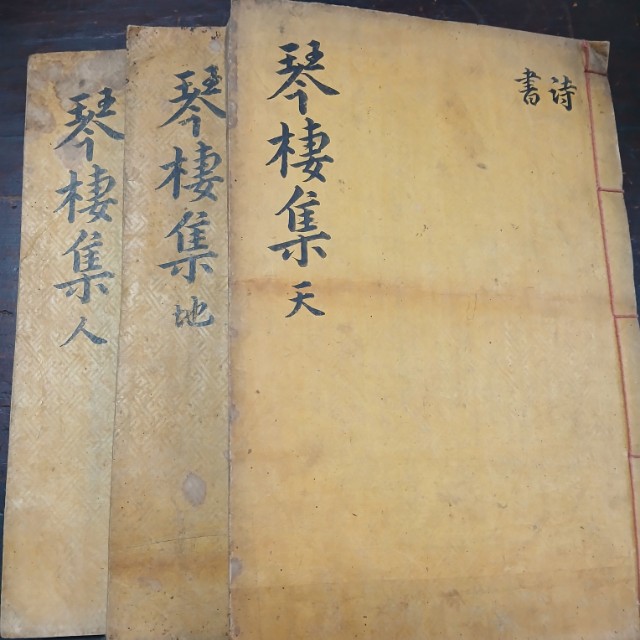 詩
書
琴棲集 天
琴棲集 地
琴棲集 人